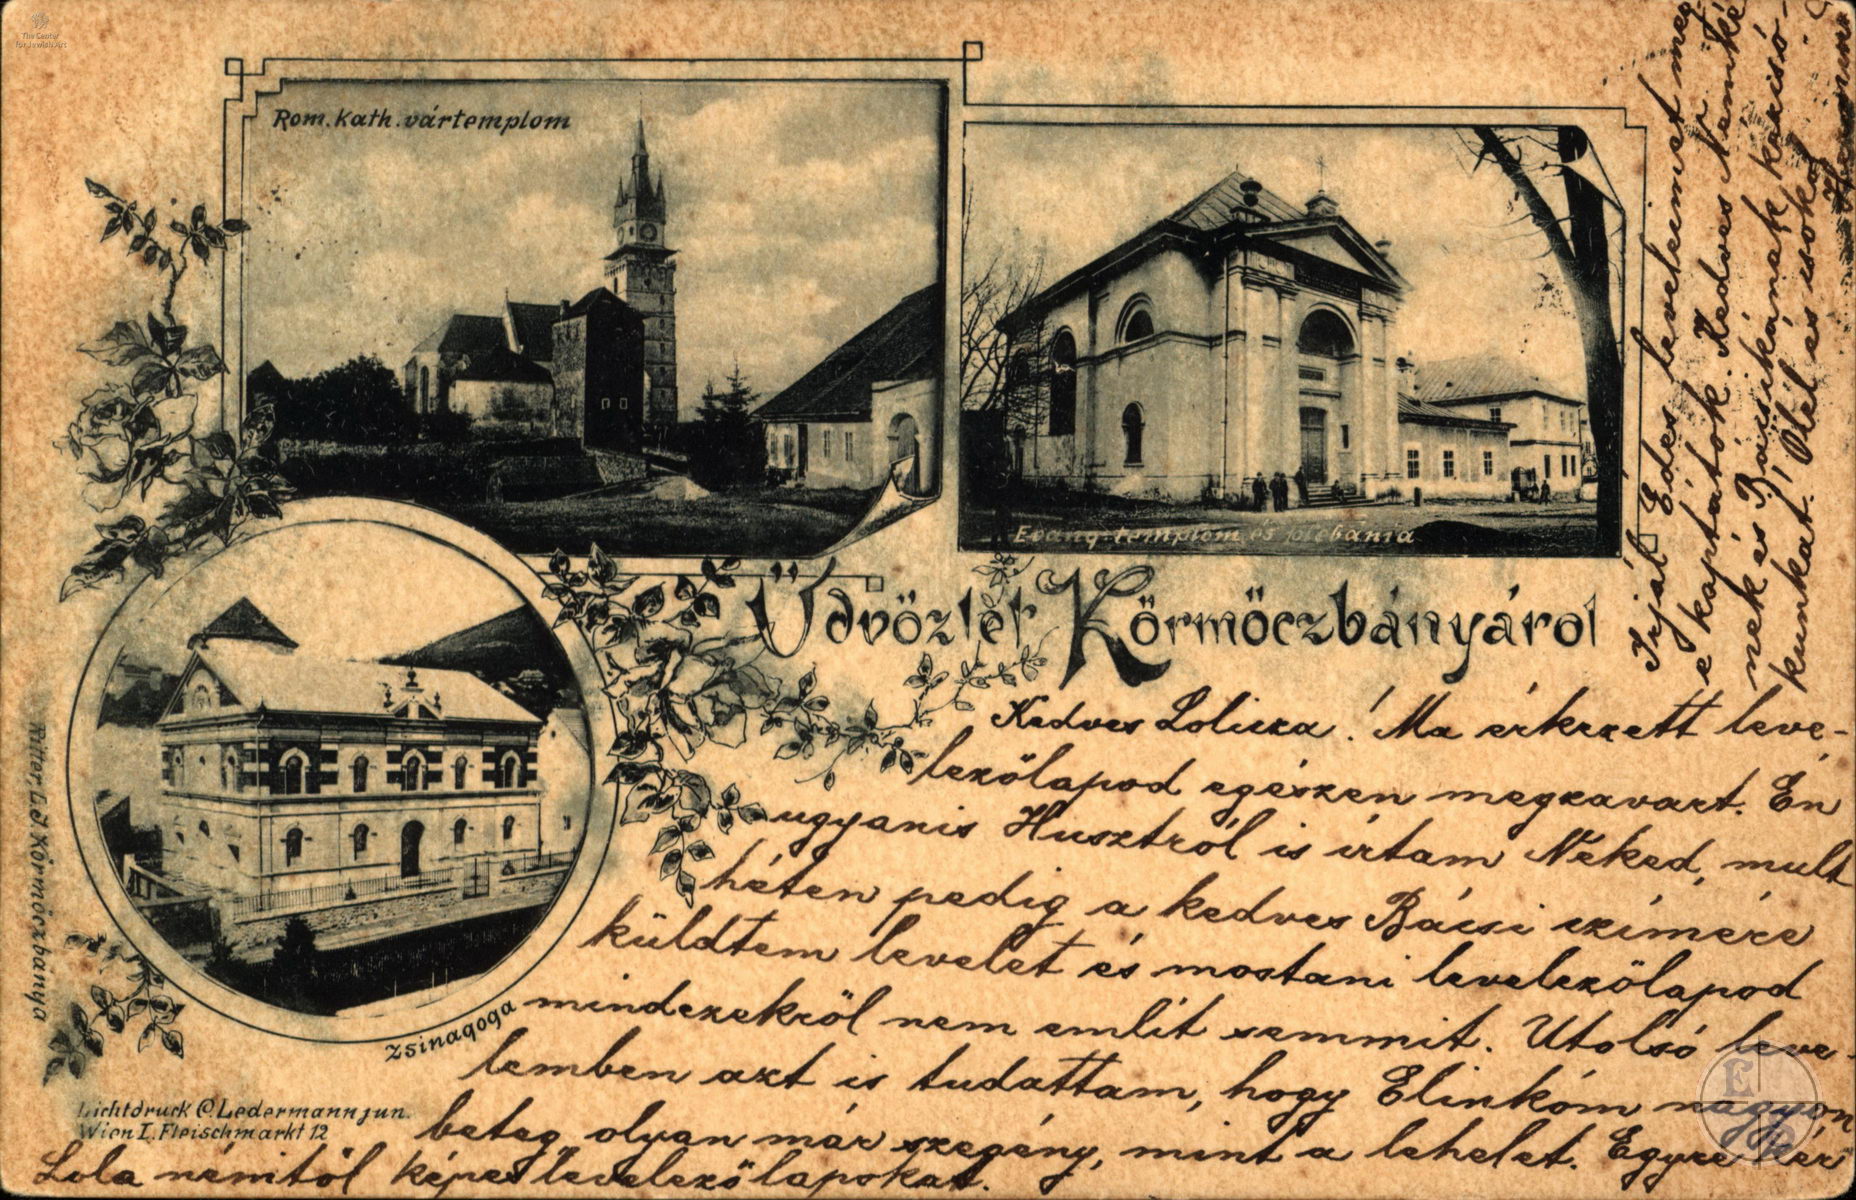 The Center
for Jewish Art
Rom. kath. vártemplom
Evang. templom és plébánia
Üdvözlet Körmöczbányáról
Zsinagoga
Ritter L. J. Körmöczbánya
Lichtdruck C. Ledermann jun.
Wien I. Fleischmarkt 12
Kedves Lolicza! Ma érkezett leve-
lezőlapod egészen megzavart. Én
ugyanis Husztról is irtam Neked, mult
héten pedig a kedves Bácsi czímére
küldtem levelet és mostani levelezőlapod
mindezekről nem emlit semmit. Utolsó leve-
lemben azt is tudattam, hogy Elinkóm nagyon
beteg, olyan már szegény, mint a lehelet. Egyre kér
Lola nénitől képes levelezőlapokat.
Irját Édes leveleimet meg
e kaptátok. Kedves Nemké
nek és Bácsikának kézcsó-
kunkat. Ölel és csókol